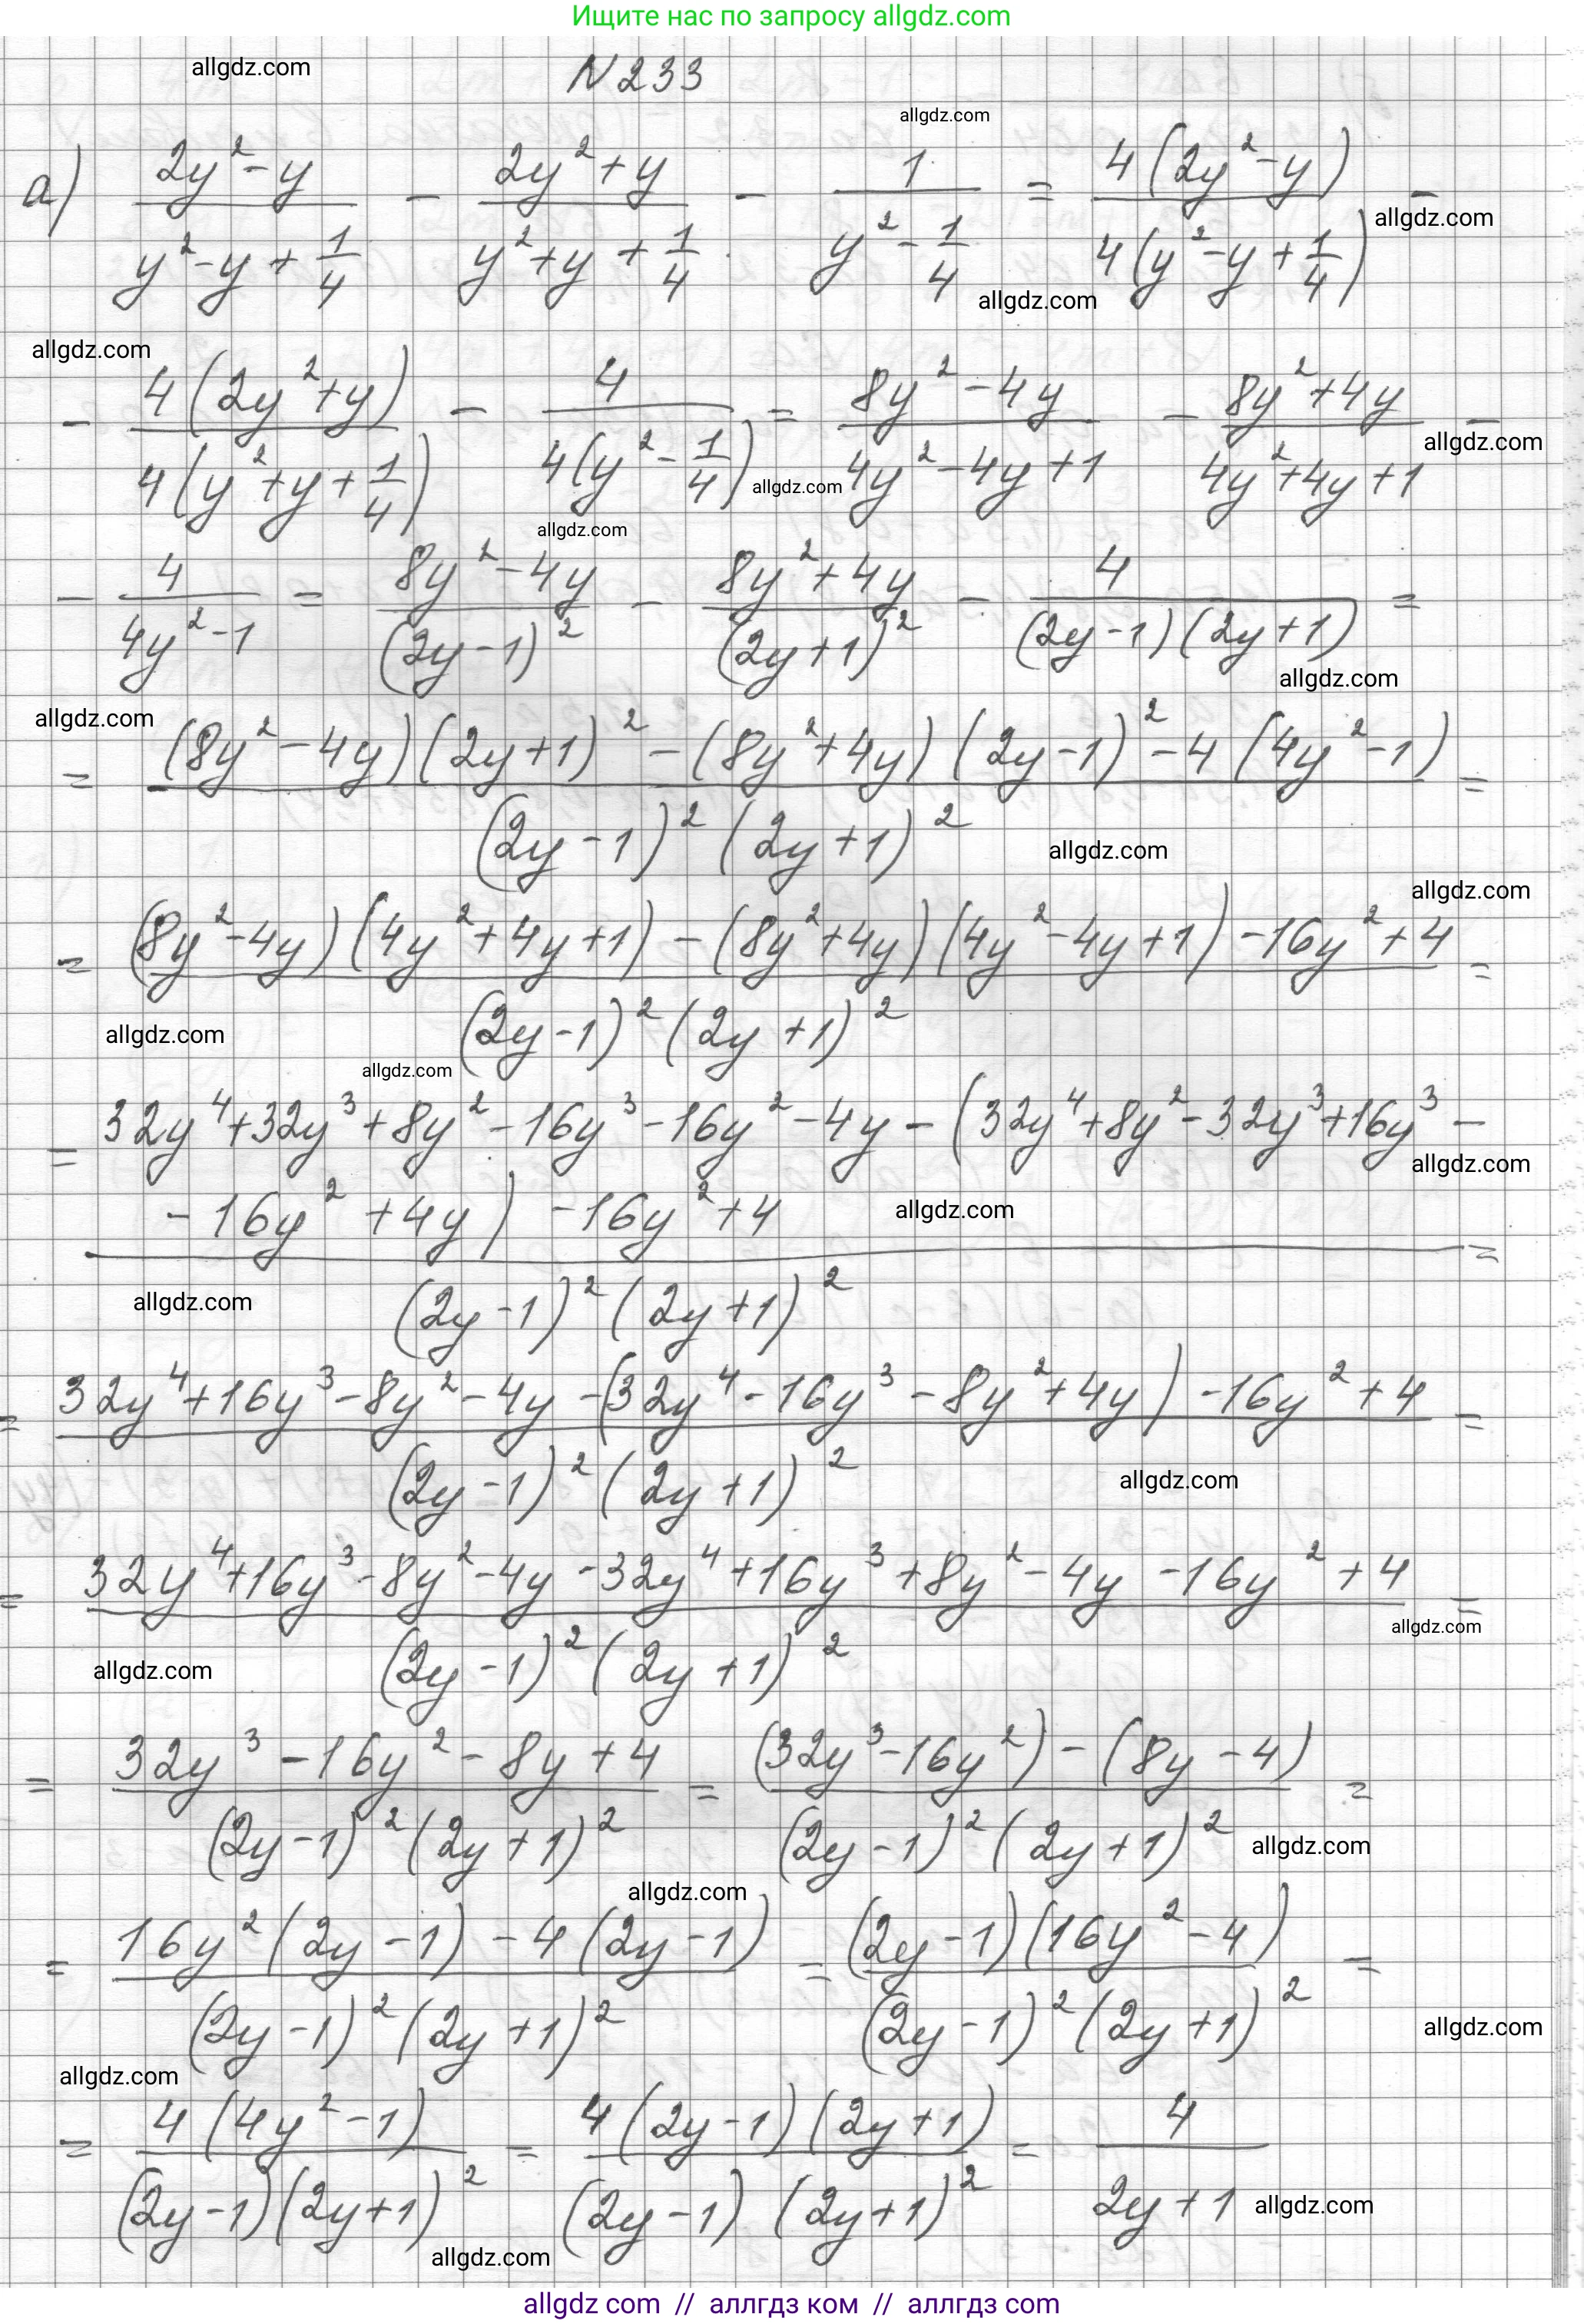 Ищите нас по запросу allgdz.com
allgdz.com
N 233
allgdz.com
а) (2y²-y)/(y²-y+1/4) - (2y²+y)/(y²+y+1/4) - 1/(y²-1/4) = 4(2y²-y)/4(y²-y+1/4) -
allgdz.com
allgdz.com
allgdz.com
- 4(2y²+y)/4(y²+y+1/4) - 4/4(y²-1/4) = (8y²-4y)/(4y²-4y+1) - (8y²+4y)/(4y²+4y+1) -
allgdz.com
allgdz.com
allgdz.com
- 4/(4y²-1) = (8y²-4y)/(2y-1)² - (8y²+4y)/(2y+1)² - 4/(2y-1)(2y+1) =
allgdz.com
allgdz.com
= (8y²-4y)(2y+1)²-(8y²+4y)(2y-1)²-4(4y²-1) =
(2y-1)²(2y+1)²
allgdz.com
allgdz.com
= (8y²-4y)(4y²+4y+1)-(8y²+4y)(4y²-4y+1)-16y²+4 =
(2y-1)²(2y+1)²
allgdz.com
allgdz.com
= 32y⁴+32y³+8y²-16y³-16y²-4y-(32y⁴+8y²-32y³+16y³-
allgdz.com
-16y²+4y)-16y²+4 =
allgdz.com
(2y-1)²(2y+1)²
allgdz.com
= 32y⁴+16y³-8y²-4y-(32y⁴-16y³-8y²+4y)-16y²+4 =
(2y-1)²(2y+1)²
allgdz.com
= 32y⁴+16y³-8y²-4y-32y⁴+16y³+8y²-4y-16y²+4 =
allgdz.com
(2y-1)²(2y+1)²
allgdz.com
= (32y³-16y²-8y+4)/(2y-1)²(2y+1)² = (32y³-16y²)-(8y-4)/(2y-1)²(2y+1)² =
allgdz.com
allgdz.com
= 16y²(2y-1)-4(2y-1)/(2y-1)²(2y+1)² = (2y-1)(16y²-4)/(2y-1)²(2y+1)² =
allgdz.com
allgdz.com
= 4(4y²-1)/(2y-1)(2y+1)² = 4(2y-1)(2y+1)/(2y-1)(2y+1)² = 4/2y+1
allgdz.com
allgdz.com
allgdz com // аллгдз ком // аллгдз com